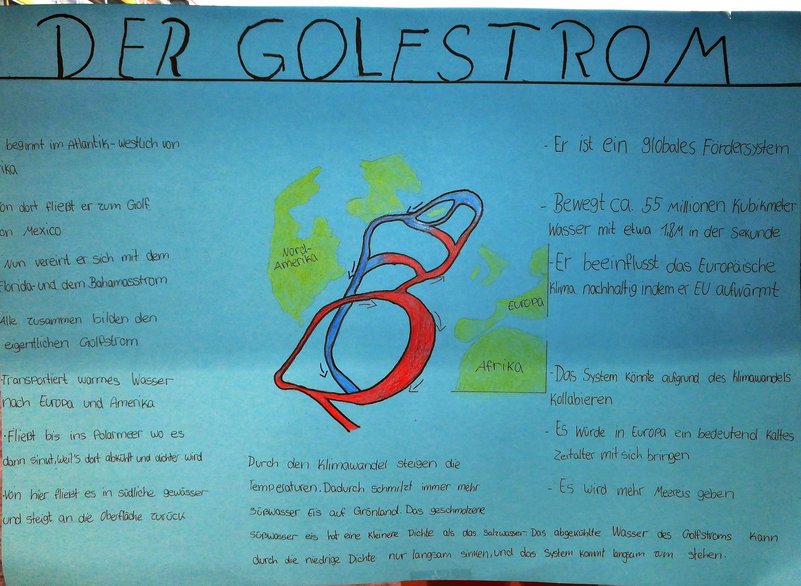 DER GOLFSTROM
beginnt im Atlantik - westlich von
ika
on dort fließt er zum Golf
on Mexico
Nun vereint er sich mit dem
Florida- und dem Bahamasstrom
Alle zusammen bilden den
eigentlichen Golfstrom
-Transportiert warmes Wasser
nach Europa und Amerika
-Fließt bis ins Polarmeer wo es
dann sinkt, weil's dort abkühlt und dichter wird
-Von hier fließt es in südliche gewässer
und steigt an die Oberfläche zurück
Nord-
Amerika
Europa
Afrika
Durch den Klimawandel steigen die
Temperaturen. Dadurch schmilzt immer mehr
süßwasser Eis auf Grönland. Das geschmolzene
süßwasser eis hat eine kleinere Dichte als das Salzwasser. Das abgekühlte Wasser des Golfstroms kann
durch die niedrige Dichte nur langsam sinken, und das System kommt langsam zum stehen.
- Er ist ein globales Fördersystem
- Bewegt ca. 55 Millionen Kubikmeter
Wasser mit etwa 1,8M in der Sekunde
- Er beeinflusst das Europäische
Klima nachhaltig indem er EU aufwärmt
- Das System könnte aufgrund des Klimawandels
Kollabieren
- Es würde in Europa ein bedeutend kaltes
Zeitalter mit sich bringen
- Es wird mehr Meereis geben